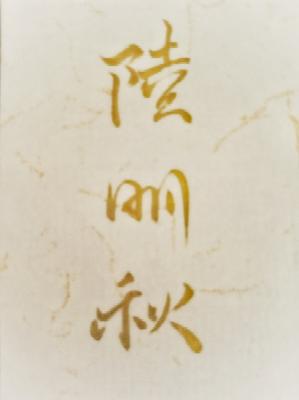 陸明秋